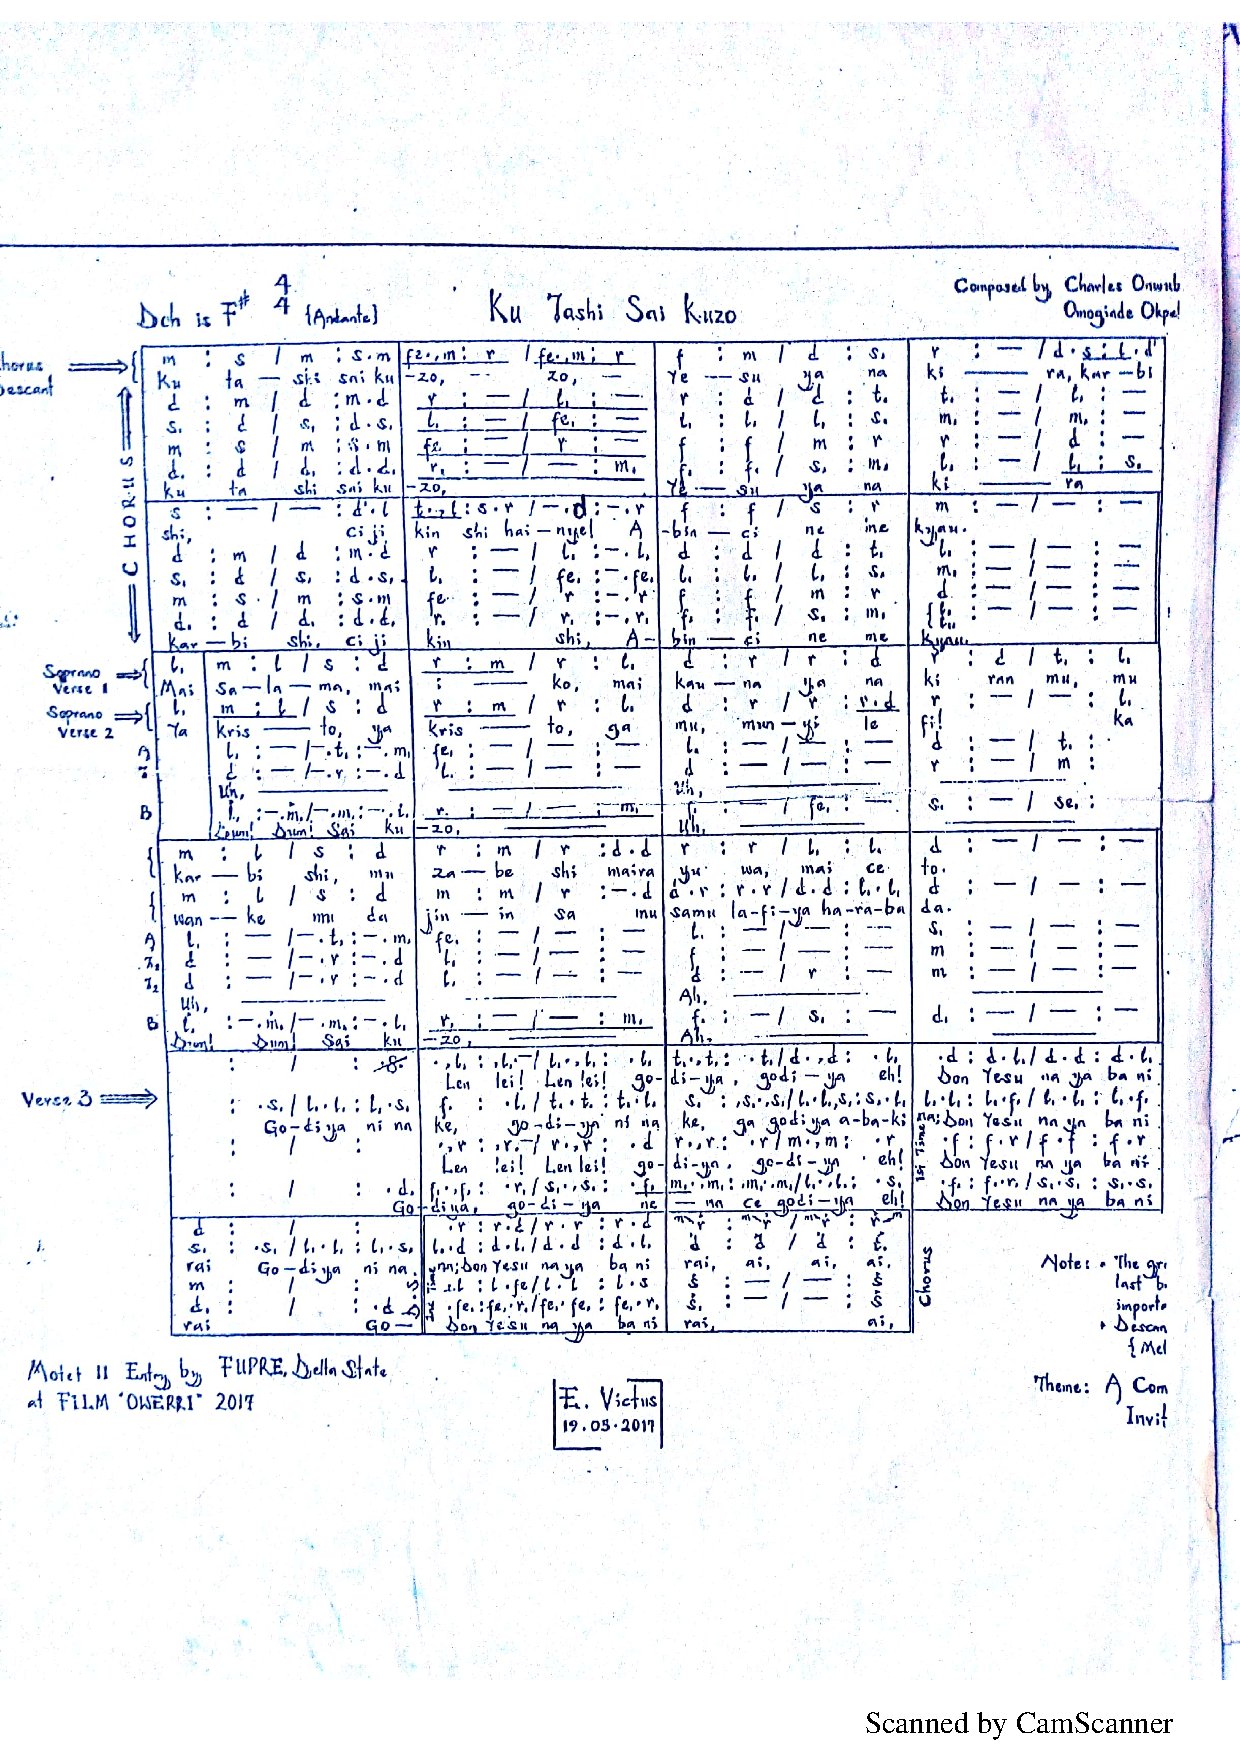 Doh is F# 4/4 {Andante} Ku Tashi Sai Kuzo
Composed by, Charles Onwub
Omoginde Okpe
Chorus
Descant
m : s / m : s.m | fe.,m : r / fe.,m : r | f : m / d : s, | r : — / d.s : l.d'
Ku ta — shi sai ku | -zo, -- zo, — | Ye — su ya na | ki — ra, kar-bi
CHORUS
d : m / d : m.d | r : — / l, : — | r : d / d : t, | t, : — / l, : —
s, : d / s, : d.s, | l, : — / fe, : — | l, : l, / l, : s, | m, : — / m, : —
m : s / m : s.m | fe : — / r : — | f : f / m : r | r : — / d : —
d, : d / d, : d.d, | r, : — / — : m, | f, : f, / s, : m, | l, : — / l, : s,
Ku ta shi sai ku | -zo, | Ye — su ya na | ki — ra
s : — / — : d'.l | t.,l : s.r / — .d : — .r | f : f / s : r | m : — / — : —
shi, ci ji | kin shi hai-nye! A | -bin — ci ne me | kyau.
d : m / d : m.d | r : — / l, : —.l, | d : d / d : t, | l, : — / — : —
s, : d / s, : d.s, | l, : — / fe, : —.fe, | l, : l, / l, : s, | m, : — / — : —
m : s / m : s.m | fe : — / r : —.r | f : f / m : r | d : — / — : —
d, : d / d, : d.d, | r, : — / r, : —.r, | f, : f, / s, : m, | {l, : — / — : —
kar — bi shi, ci ji | kin shi, A- | bin — ci ne me | kyau.
Soprano
Verse 1
l, | m : l / s : d | r : m / r : l, | d : r / r : d | r : d / t, : l,
Mai | sa—la—ma, mai | i — ko, mai | kau—na ya na | ki ran mu, mu
Soprano
Verse 2
l, | m : l / s : d | r : m / r : l, | d : r / r : r.d | r : — / — : l,
Ya | kris — to, ya | kris — to, ga | mu, mun—yi le | fi! ka
A l, : — / —.t, : —.m, | fe, : — / — : — | l, : — / — : — | d : — / t, :
T d : — / —.r : —.d | l, : — / — : — | d : — / — : — | r : — / m :
Uh, | Uh,
B l, : —.m, / —.m, : —.l, | r, : — / — : m, | f, : — / fe, : — | s, : — / se, :
Dum! Dum! Sai ku | -zo, | Uh,
m : l / s : d | r : m / r : d.d | r : r / l, : l, | d : — / — : —
kar — bi shi, mu | za — be shi maira | yu wa, mai ce | to.
m : l / s : d | m : m / r : —.d | d.r : r.r / d.d : l,.l, | d : — / — : —
wan — ke mu da | jin — in sa mu | samu la-fi-ya ha-ra-ba | da.
A l, : — / —.t, : —.m, | fe, : — / — : — | l, : — / — : — | s, : — / — : —
T1 d : — / —.r : —.d | l, : — / — : — | f : — / — : — | m : — / — : —
T2 d : — / —.r : —.d | l, : — / — : — | d : — / r : — | m : — / — : —
Uh, | Ah,
B l, : —.m, / —.m, : —.l, | r, : — / — : m, | f, : — / s, : — | d, : — / — : —
Dum! Dum! Sai ku | -zo, | Ah,
Verse 3
Len lei! Len lei! go- | di-ya, godi-ya eh! | Don Yesu na ya ba ni
: .s, / l,.l, : l,.s,
Go-di ya ni na | ke, go-di-ya ni na | ke, ga godiya a-ba-ki | na; Don Yesu na ya ba ni
Len lei! Len lei! go- | di-ya, go-di-ya eh! | Don Yesu na ya ba ni
1st Time
Go- | diya, go-di-ya ne | — na ce godi-ya eh! | Don Yesu na ya ba ni
d : / : | .r : r.d / r.r : r.d
s, : .s, / l,.l, : l,.s, | l,.d : d.l, / d.d : d.l, | d : d / d : t,
rai Go-di ya ni na | na; Don Yesu na ya ba ni | rai, ai, ai, ai,
m : / : | s : — / — : s
d, : / : .d | .fe, : fe,.r, / fe,.fe, : fe,.r, | s, : — / — : s
rai Go— | Don Yesu na ya ba ni | rai, ai,
Chorus
Note: • The gr
last b
importa
• Descan
{Mel
Motet II Entry by FUPRE, Delta State
at FILM "OWERRI" 2017
E. Victus
19.05.2017
Theme: A Com
Invit
Scanned by CamScanner